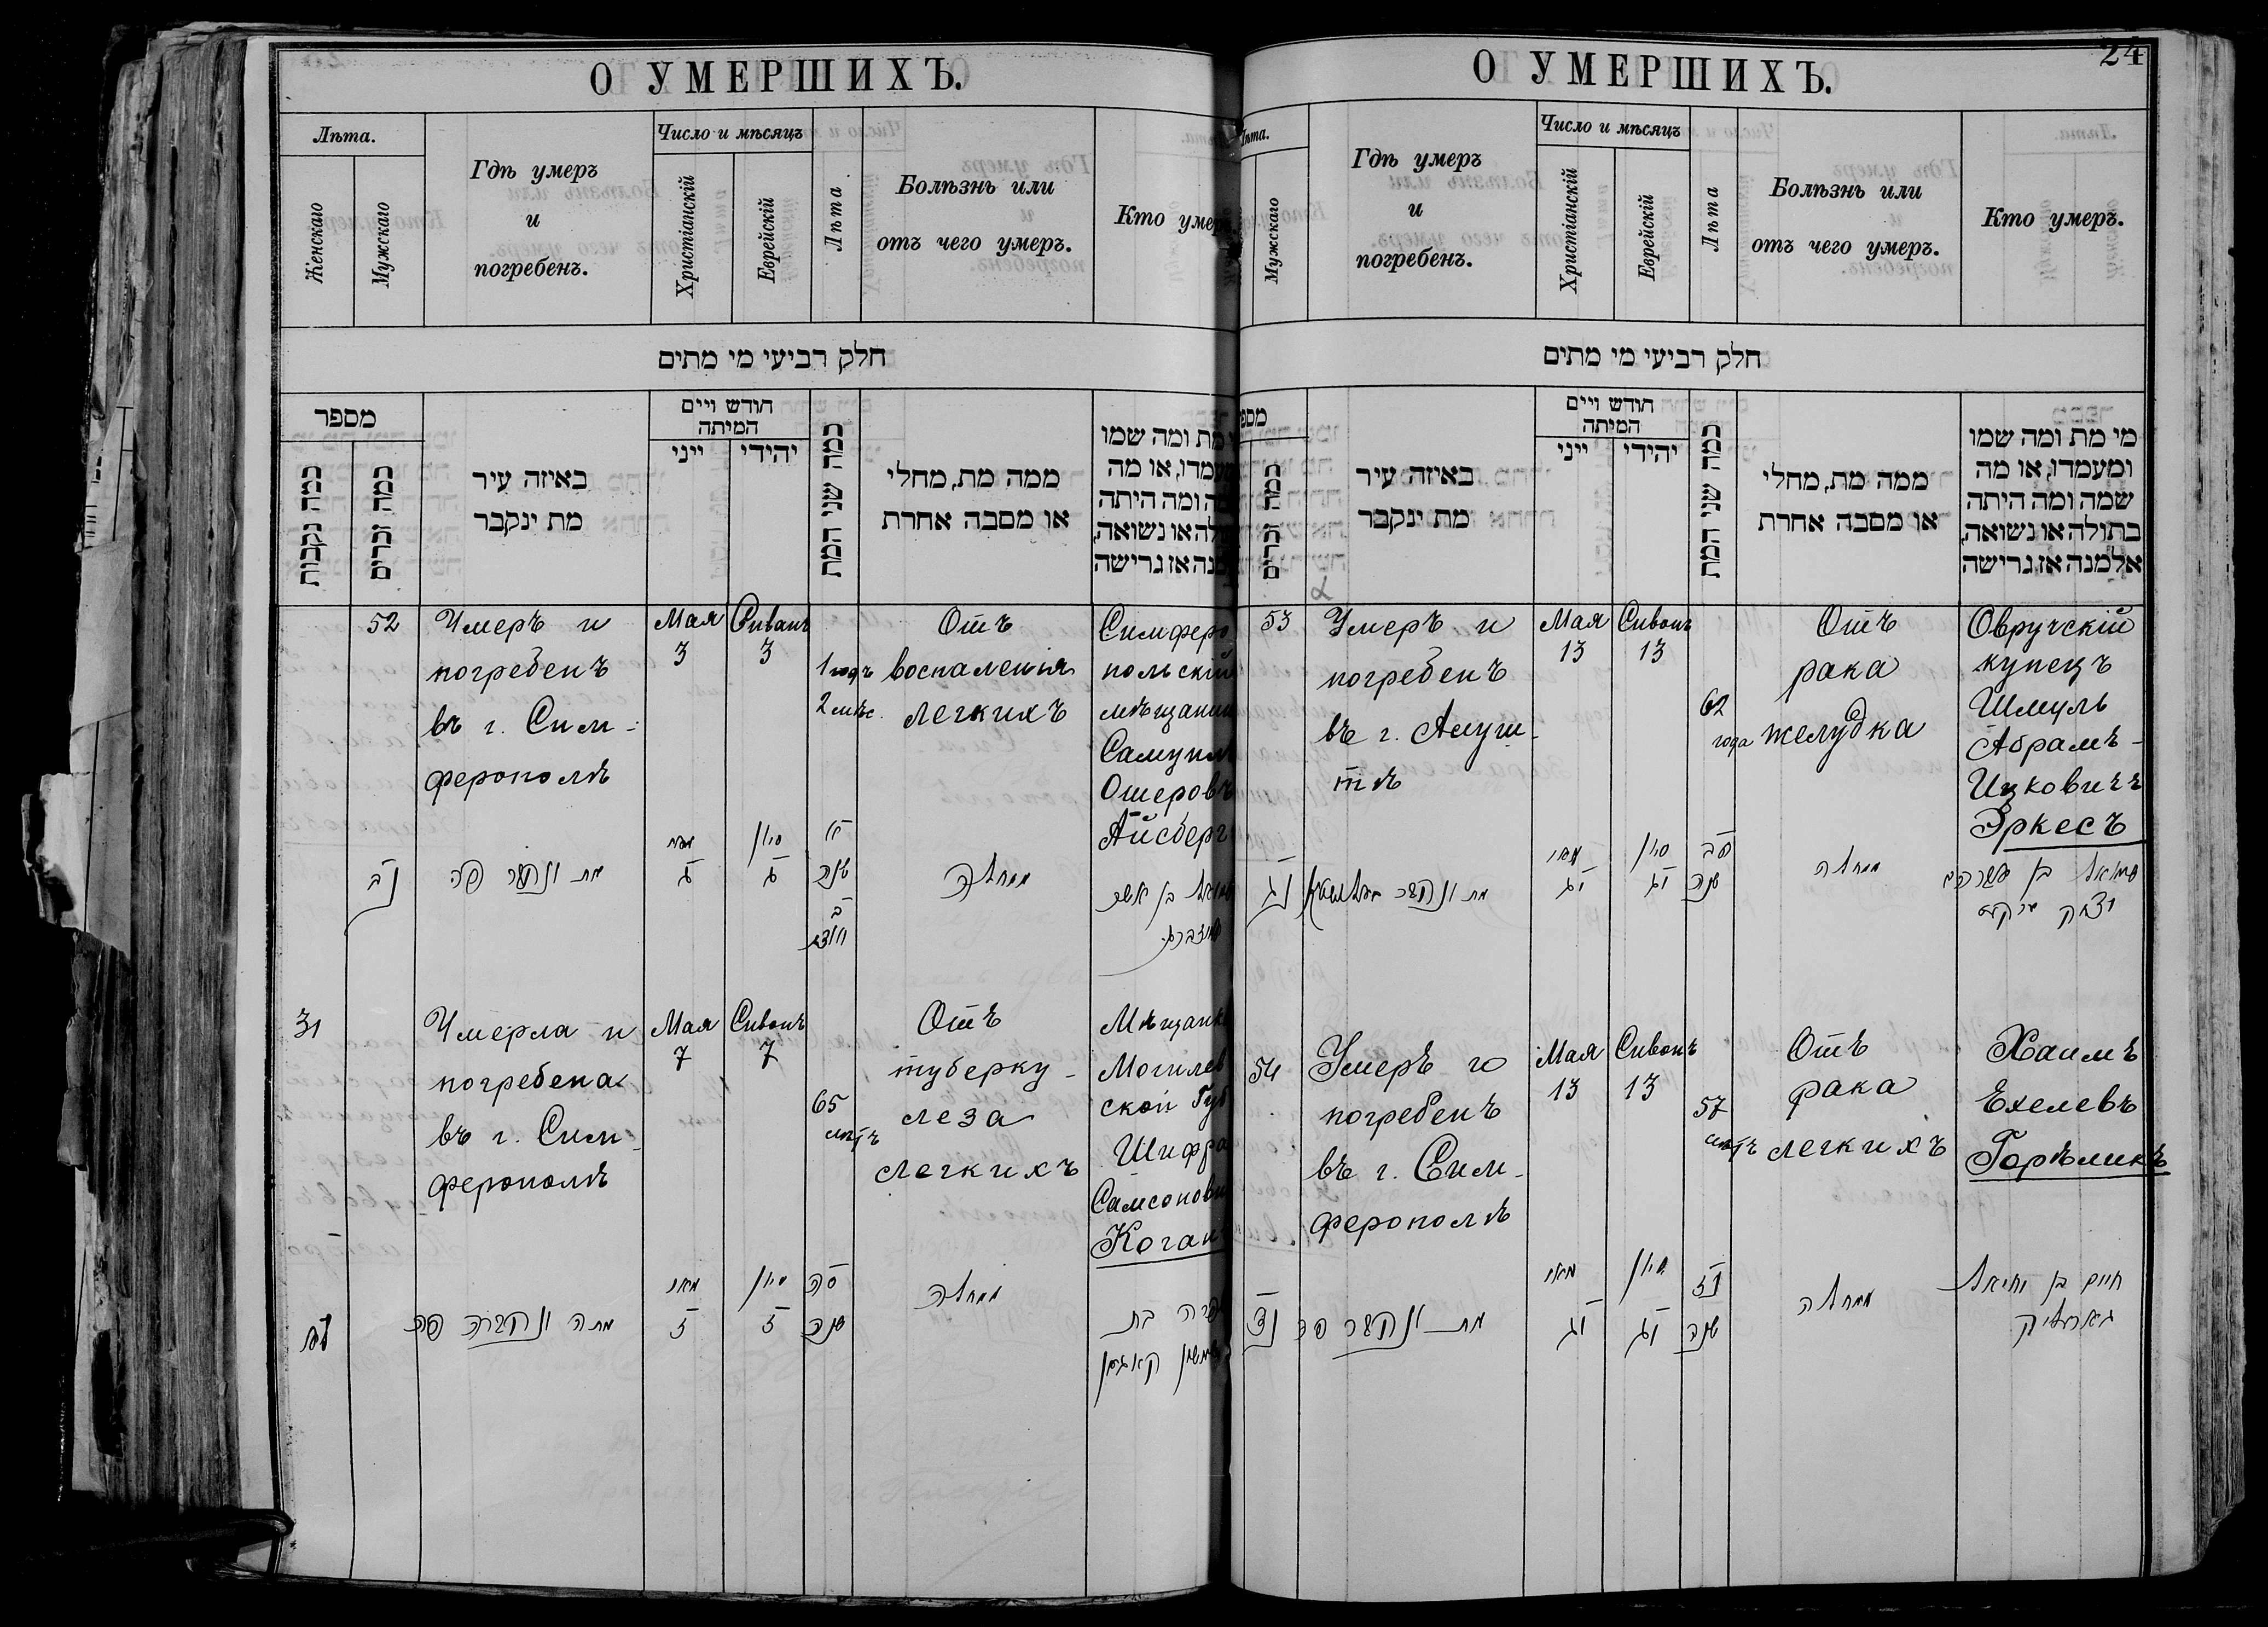 О УМЕРШИХЪ.
Лѣта.
Женскаго
Мужскаго
Гдѣ умеръ
и
погребенъ.
Число и мѣсяцъ
Христіанскій
Еврейскій
Лѣта
Болѣзнь или
отъ чего умеръ.
Кто умеръ
חלק רביעי מי מתים
מספר
כמה נקבות
כמה זכרים
באיזה עיר
מת ינקבר
חודש ויים
המיתה
ייני
יהידי
כמה שני המת
ממה מת, מחלי
או מסבה אחרת
מת ומה שמו
ומה היתה
או נשואה,
או גרישה
52
Умеръ и
погребенъ
въ г. Сим-
ферополѣ
Мая
3
Сиванъ
3
1 годъ
2 мѣс.
Отъ
воспаленія
легкихъ
Симферо
польскій
мѣщанин
Самуил
Ошеровъ
Айсберг
נב
מת ונקבר פה
ג
סיון
ג
שנה
ב
ממחלה
בן אשר
31
Умерла и
погребена
въ г. Сим-
ферополѣ
Мая
7
Сивонъ
7
65
лѣтъ
Отъ
туберку-
леза
легкихъ
Мѣщанк
Могилев
ской Губ
Шифра
Самсонови
Коган
לא
מתה ונקברה פה
מאי
ז
סיון
ז
סה
שנה
ממחלה
בת
קאגאן
24
О УМЕРШИХЪ.
Мужскаго
Гдѣ умеръ
и
погребенъ.
Число и мѣсяцъ
Христіанскій
Еврейскій
Лѣта
Болѣзнь или
отъ чего умеръ.
Кто умеръ.
חלק רביעי מי מתים
כמה זכרים
באיזה עיר
מת ינקבר
חודש ויים
המיתה
ייני
יהידי
כמה שני המת
ממה מת, מחלי
או מסבה אחרת
מי מת ומה שמו
ומעמדו, או מה
שמה ומה היתה
בתולה או נשואה,
אלמנה אז גרישה
53
Умеръ и
погребенъ
въ г. Алуш-
тѣ
Мая
13
Сивонъ
13
62
года
Отъ
рака
желудка
Овручскій
купецъ
Шмуль
Абрамъ-
Ицковичъ
Эркесъ
נג
מת ונקבר
יג
סיון
יג
סב
שנה
ממחלה
שמואל בן אברהם
יצחק
54
Умеръ и
погребенъ
въ г. Сим-
ферополѣ
Мая
13
Сивонъ
13
57
лѣтъ
Отъ
рака
легкихъ
Хаимъ
Ехелевъ
Горѣликъ
נד
מת ונקבר פה
מאי
יג
סיון
יג
נז
שנה
ממחלה
חיים בן יחיאל
גארעליק